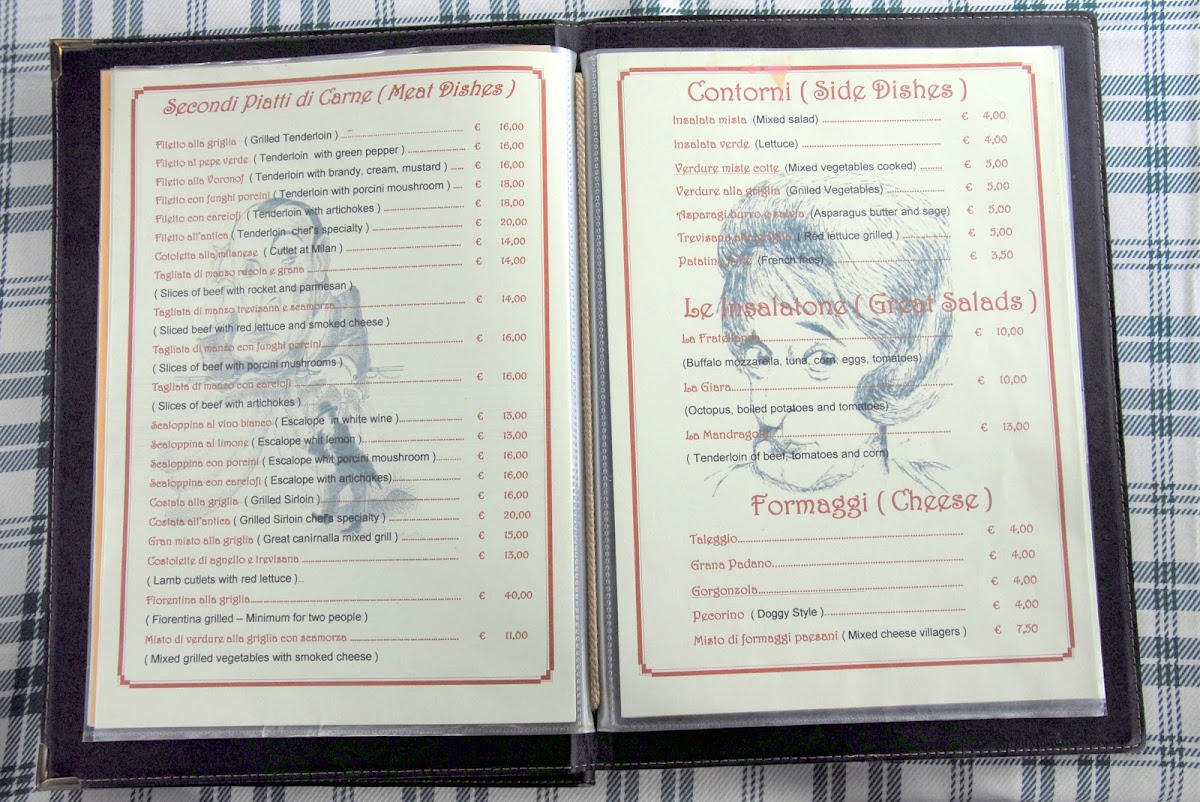 Secondi Piatti di Carne ( Meat Dishes )
Filetto alla griglia ( Grilled Tenderloin ) € 16,00
Filetto al pepe verde ( Tenderloin with green pepper ) € 16,00
Filetto alla Voronof ( Tenderloin with brandy, cream, mustard ) € 16,00
Filetto con funghi porcini ( Tenderloin with porcini moushroom ) € 18,00
Filetto con carciofi ( Tenderloin with artichokes ) € 18,00
Filetto all'antica ( Tenderloin chef's specialty ) € 20,00
Cotoletta alla milanese ( Cutlet at Milan ) € 14,00
Tagliata di manzo rucola e grana € 14,00
( Slices of beef with rocket and parmesan )
Tagliata di manzo trevisana e scamorza € 14,00
( Sliced beef with red lettuce and smoked cheese )
Tagliata di manzo con funghi porcini € 16,00
( Slices of beef with porcini mushrooms )
Tagliata di manzo con carciofi € 16,00
( Slices of beef with artichokes )
Scaloppina al vino bianco ( Escalope in white wine ) € 13,00
Scaloppina al limone ( Escalope whit lemon ) € 13,00
Scaloppina con porcini ( Escalope whit porcini moushroom ) € 16,00
Scaloppina con carciofi ( Escalope with artichokes) € 16,00
Costata alla griglia ( Grilled Sirloin ) € 16,00
Costata all'antica ( Grilled Sirloin chef's specialty ) € 20,00
Gran misto alla griglia ( Great canirnalla mixed grill ) € 15,00
Costolette di agnello e trevisana € 13,00
( Lamb cutlets with red lettuce )
Fiorentina alla griglia € 40,00
( Fiorentina grilled – Minimum for two people )
Misto di verdure alla griglia con scamorza € 11,00
( Mixed grilled vegetables with smoked cheese )
Contorni ( Side Dishes )
Insalata mista (Mixed salad) € 4,00
Insalata verde (Lettuce) € 4,00
Verdure miste cotte (Mixed vegetables cooked) € 5,00
Verdure alla griglia (Grilled Vegetables) € 5,00
Asparagi burro e salvia (Asparagus butter and sage) € 5,00
Trevisana alla griglia ( Red lettuce grilled ) € 5,00
Patatine fritte (French fries) € 3,50
Le Insalatone ( Great Salads )
La Fratellanza € 10,00
(Buffalo mozzarella, tuna, corn, eggs, tomatoes)
La Giara € 10,00
(Octopus, boiled potatoes and tomatoes)
La Mandragola € 13,00
( Tenderloin of beef, tomatoes and corn)
Formaggi ( Cheese )
Taleggio € 4,00
Grana Padano € 4,00
Gorgonzola € 4,00
Pecorino ( Doggy Style ) € 4,00
Misto di formaggi paesani ( Mixed cheese villagers ) € 7,50